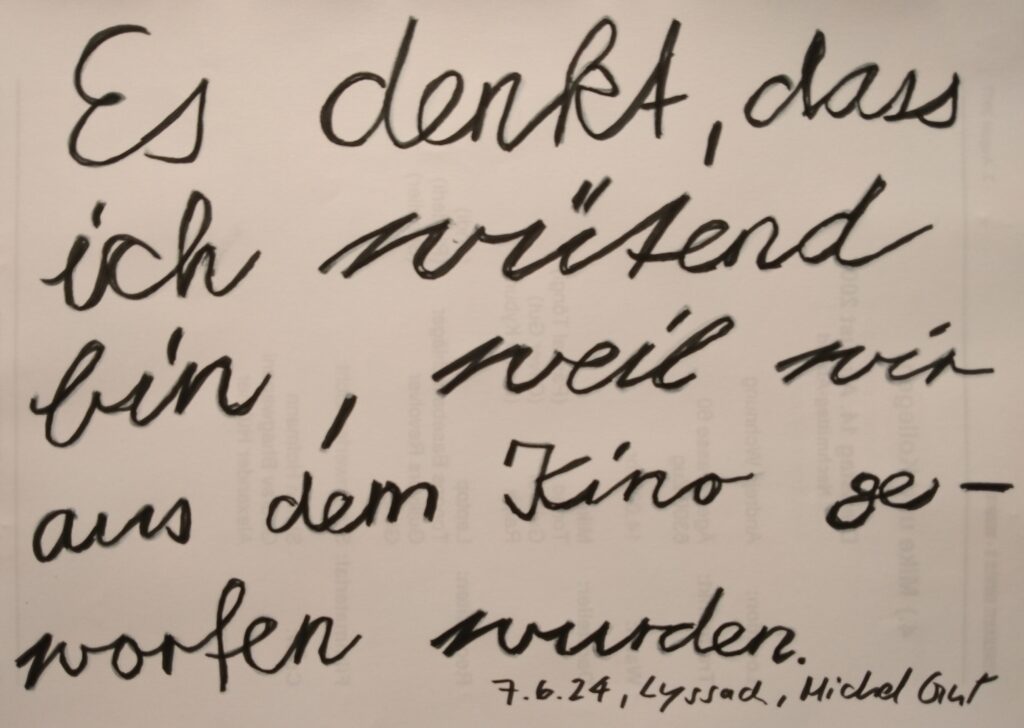 Es denkt, dass
ich wütend
bin, weil wir
aus dem Kino ge-
worfen wurden.
7.6.24, Lyssach, Michel Gut